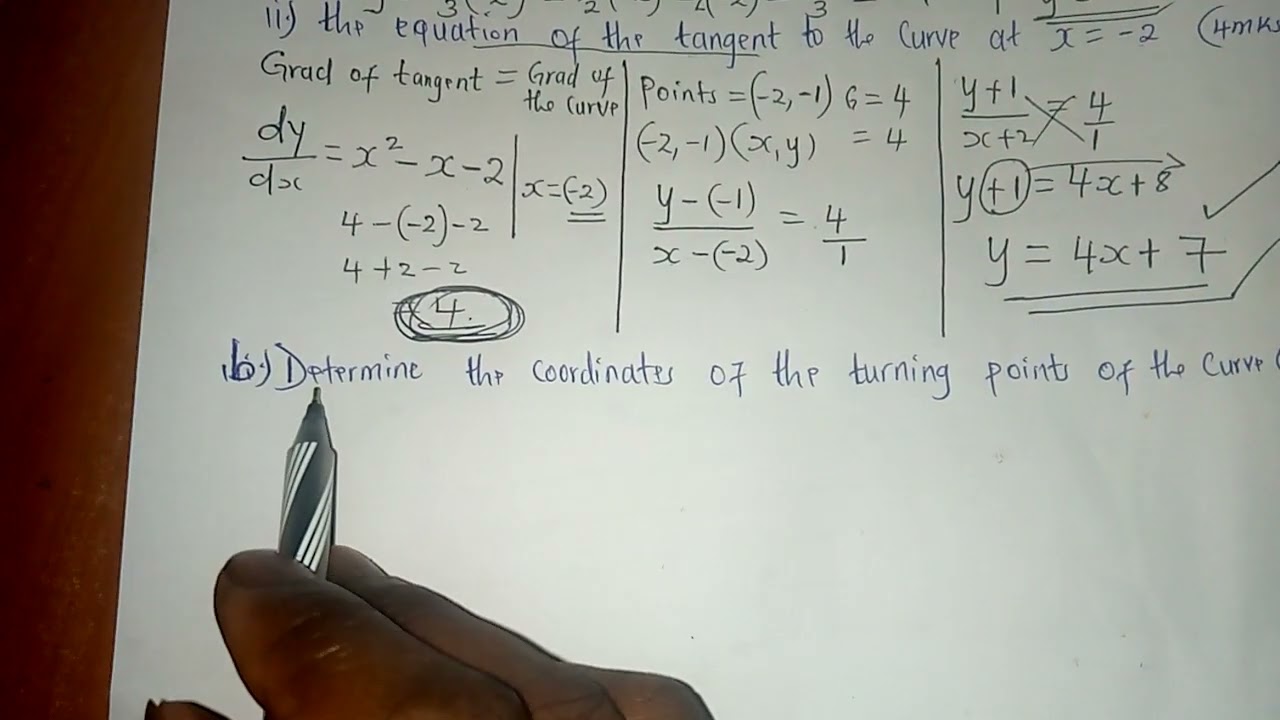 ii.) the equation of the tangent to the curve at x = -2 (4mks
Grad of tangent = Grad of the curve
dy/dx = x² - x - 2 | x = (-2)
4 - (-2) - 2
4 + 2 - 2
4.
Points = (-2, -1) G = 4
(-2, -1) (x, y) = 4
y - (-1) / x - (-2) = 4/1
y + 1 / x + 2 = 4/1
y + 1 = 4x + 8
y = 4x + 7
b.) Determine the coordinates of the turning points of the curve (